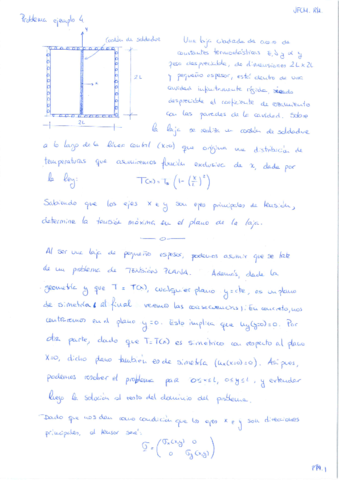 Problema ejemplo 4
y
Cordón de soldadura
2L
x
2L
Una laja cuadrada de acero de
constantes termoelásticas E, k, y
peso despreciable, de dimensiones 2L x 2L
y pequeño espesor, está dentro de una
cavidad infinitamente rígida, siendo
despreciable el coeficiente de rozamiento
con las paredes de la cavidad. Sobre
la laja se realiza un cordón de soldadura
a lo largo de la línea central (x=0) que origina una distribución de
temperaturas que asumiremos función exclusiva de x, dada por
la ley: T(x) = T₀ (1 - (x/L)²)
Sabiendo que los ejes x e y son ejes principales de tensión,
determine la tensión máxima en el plano de la laja.
Al ser una laja de pequeño espesor, podemos asumir que se trata
de un problema de TENSIÓN PLANA. Además, dada la
geometría y que T = T(x), cualquier plano y=cte, es un plano
de simetría (al final veremos las consecuencias). En concreto, nos
centraremos en el plano y=0. Esto implica que uy(y=0)=0. Por
otra parte, dado que T=T(x) es simétrica con respecto al plano
x=0, dicho plano también es de simetría (ux(x=0)=0). Así pues,
podemos resolver el problema para 0≤x≤L, 0≤y≤L, y extender
luego la solución al resto del dominio del problema.
Dado que nos dan como condición que los ejes x e y son direcciones
principales, el tensor será:
σ = (σx(x,y) 0
0 σy(x,y))